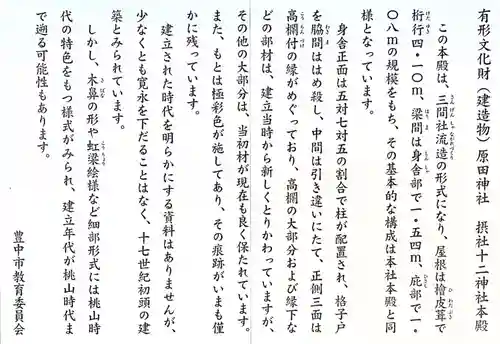 有形文化財（建造物）原田神社　摂社十二神社本殿
この本殿は、三間社流造の形式になり、屋根は檜皮葺で
桁行四・一〇ｍ、梁間は身舎部で一・五四ｍ、庇部で一・
〇八ｍの規模をもち、その基本的な構成は本社本殿と同
様となっています。
身舎正面は五対七対五の割合で柱が配置され、格子戸
を脇間ははめ殺し、中間は引き違いにたて、正側三面は
高欄付の縁がめぐっており、高欄の大部分および縁下な
どの部材は、建立当時から新しくとりかわっていますが、
その他の大部分は、当初材が現在も良く保たれています。
また、もとは極彩色が施してあり、その痕跡がいまも僅
かに残っています。
建立された時代を明らかにする資料はありませんが、
少なくとも寛永を下だることはなく、十七世紀初頭の建
築とみられています。
しかし、木鼻の形や虹梁絵様など細部形式には桃山時
代の特色をもつ様式がみられ、建立年代が桃山時代ま
で遡る可能性もあります。
豊中市教育委員会